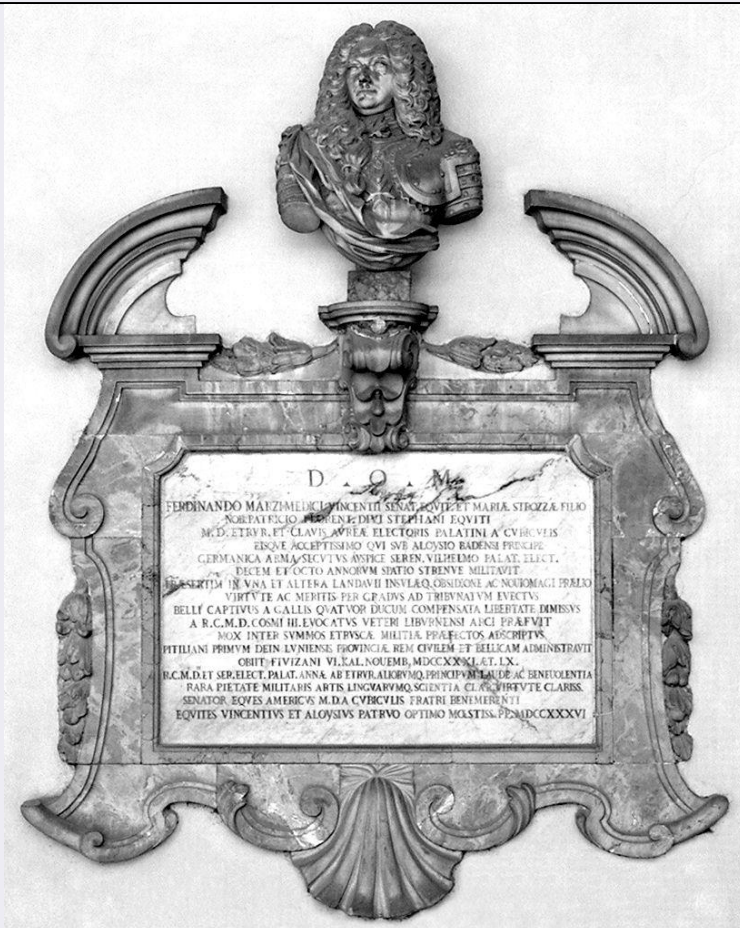 D . O . M
FERDINANDO MARZI-MEDICI VINCENTII SENAT. EQVITE, ET MARIÆ STROZZÆ FILIO
NOB. PATRICIO FLORENT. DIVI STEPHANI EQVITI
M. D. ETRVR. ET CLAVIS AVREÆ ELECTORIS PALATINI A CVBICVLIS
EISQVE ACCEPTISSIMO QVI SVB ALOYSIO BADENSI PRINCIPE
GERMANICA ARMA SECVTVS AVSPICE SEREN. VILHELMO PALAT. ELECT.
DECEM ET OCTO ANNORVM SPATIO STRENVE MILITAVIT
PRÆSERTIM IN VNA ET ALTERA LANDAVII INSVLÆQ. OBSIDIONE AC NOVIOMAGI PRÆLIO
VIRTVTE AC MERITIS PER GRADVS AD TRIBVNATVM EVECTVS
BELLI CAPTIVVS A GALLIS QVATVOR DUCUM COMPENSATA LIBERTATE DIMISSVS
A R.C.M.D. COSMI III. EVOCATVS VETERI LIBVRNENSI ARCI PRÆFVIT
MOX INTER SVMMOS ETRVSCÆ MILITIÆ PRÆFECTOS ADSCRIPTVS
PITILIANI PRIMVM DEIN LVNIENSIS PROVINCIÆ REM CIVILEM ET BELLICAM ADMINISTRAVIT
OBIIT FIVIZANI VI. KAL. NOUEMB. MDCCXXXI. ÆT. LX.
R.C.M.D. ET SER. ELECT. PALAT. ANNÆ AB ETRVR. ALIORVMQ. PRINCIPVM LAUDE AC BENEUOLENTIA
RARA PIETATE MILITARIS ARTIS LINGVARVMQ. SCIENTIA CLAR. VIRTVTE CLARISS.
SENATOR EQVES AMERICVS M.D. A CVBICVLIS FRATRI BENEMERENTI
EQVITES VINCENTIVS ET ALOYSIVS PATRVO OPTIMO MOESTISS. PP. MDCCXXXVI